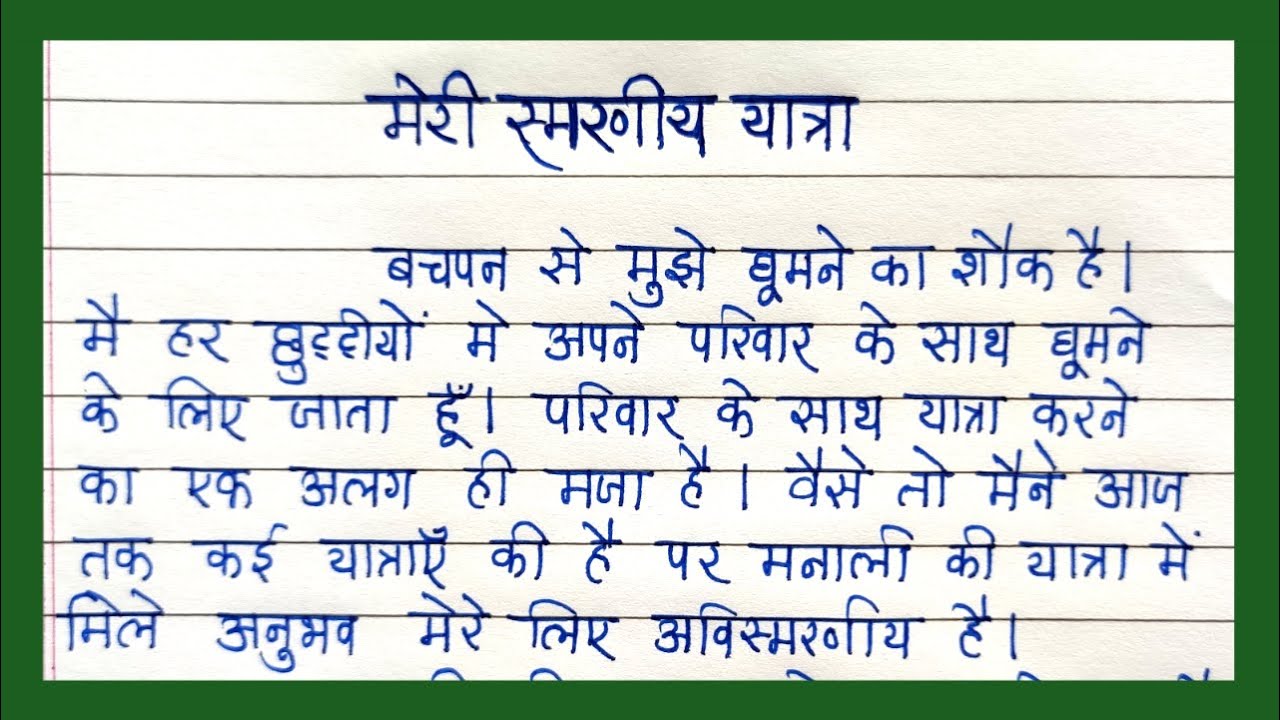 मेरी स्मरणीय यात्रा
बचपन से मुझे घूमने का शौक है।
मै हर छुट्टीयों मे अपने परिवार के साथ घूमने
के लिए जाता हूँ। परिवार के साथ यात्रा करने
का एक अलग ही मजा है। वैसे तो मैने आज
तक कई यात्राएँ की है पर मनाली की यात्रा में
मिले अनुभव मेरे लिए अविस्मरणीय है।